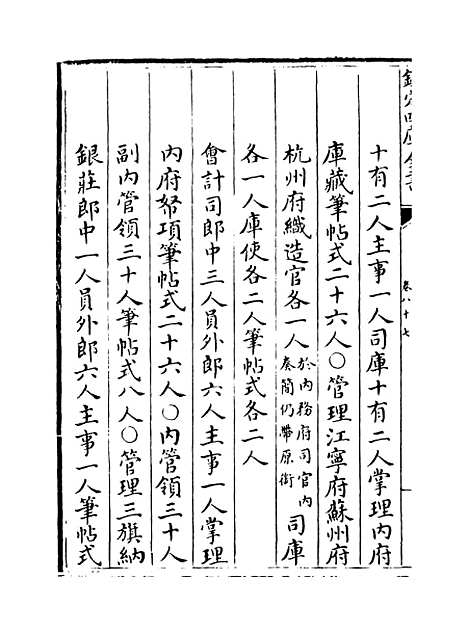 欽定四庫全書
卷八十七
十有二人主事一人司庫十有二人掌理内府
庫藏筆帖式二十六人○管理江寧府蘇州府
杭州府織造官各一人於内務府司官内奏簡仍帶原銜司庫
各一人庫使各二人筆帖式各二人
會計司郎中三人員外郎六人主事一人掌理
内府帑項筆帖式二十六人○内管領三十人
副内管領三十人筆帖式八人○管理三旗納
銀莊郎中一人員外郎六人主事一人筆帖式